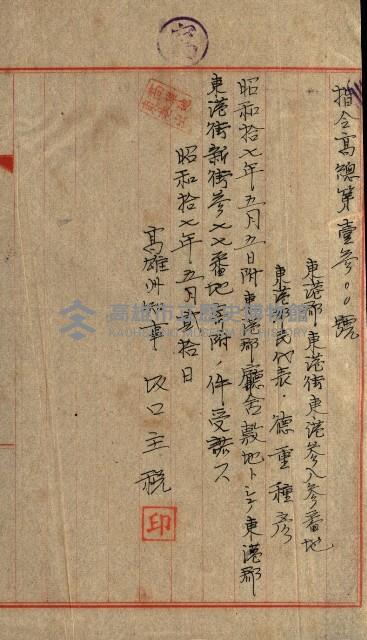 指令高總第壹參〇〇號
東港郡東港街東港參八參番地
東港郡民代表 德重種彥
昭和拾七年五月五日附東港郡廳舍敷地トシテ東港郡
東港街新街參七七番地寄附ノ件受諾ス
昭和拾七年五月貳拾日
高雄州知事 坂口主税
印
高雄市立歷史博物館
KAOHSIUNG MUSEUM OF HISTORY